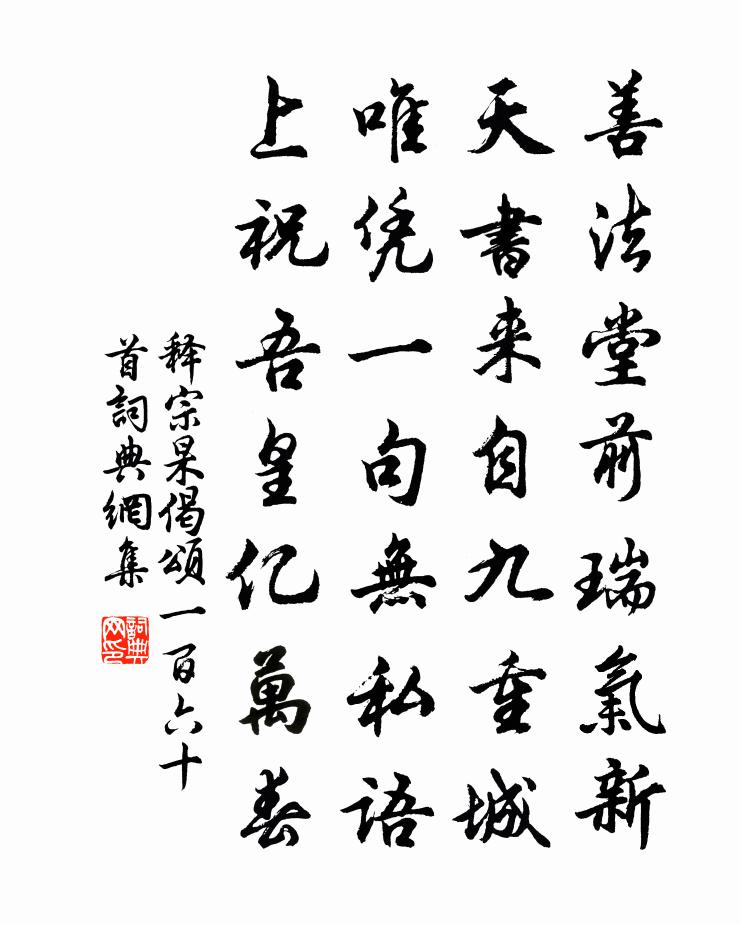 善法堂前瑞氣新
天書来自九重城
唯凭一句無私语
上祝吾皇亿萬春
释宗杲偈頌一百六十
首詞典網集
詞典网印